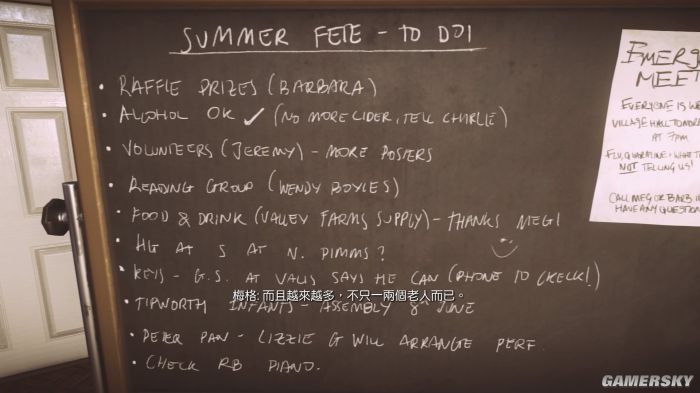 SUMMER FETE - TO DO!
• RAFFLE PRIZES (BARBARA)
• ALCOHOL OK ✓ (NO MORE CIDER, TELL CHARLIE)
• VOLUNTEERS (JEREMY) - MORE POSTERS
• READING GROUP (WENDY BOYLES)
• FOOD & DRINK (VALLEY FARMS SUPPLY) - THANKS MEG!
• HG AT S AT N. PIMMS?
• KEYS - G.S. AT VALIS SAYS HE CAN (PHONE TO CHECK!)
梅格: 而且越來越多，不只一兩個老人而已。
• TIPWORTH INFANTS - ASSEMBLY 8TH JUNE
• PETER PAN - LIZZIE G WILL ARRANGE PERF.
• CHECK RB PIANO.
EMERG
MEET
EVERYONE IS WE
VILLAGE HALL TOMORR
AT 7PM
FLU, QUARANTINE + WHAT TH
NOT TELLING US!
CALL MEG OR BARB I
HAVE ANY QUESTION
GAMERSKY